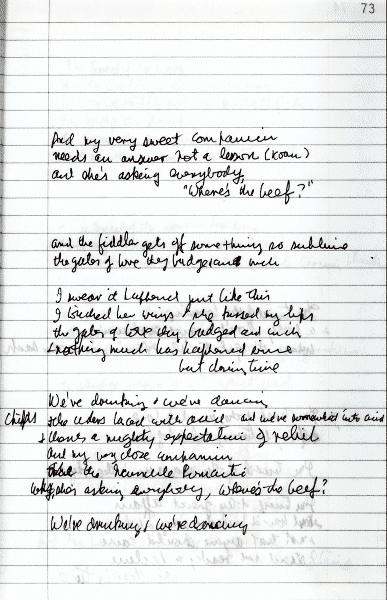 73
And my very sweet companion
needs an answer not a lesson (koan)
and she's asking everybody,
"Where's the beef?"
and the fiddler gets off something so sublime
the gates of love they budged an inch
I swear it happened just like this
I touched her wings & she kissed my lips
the gates of love they budged an inch
& nothing much has happened since
but doing time
We're drinking & we're dancing
chiefs the others laced with acid and we've into acid
& there's a mighty expectation of relief
And my very close companion
the Romantic
why she's asking everybody, where's the beef?
We're drinking & we're dancing